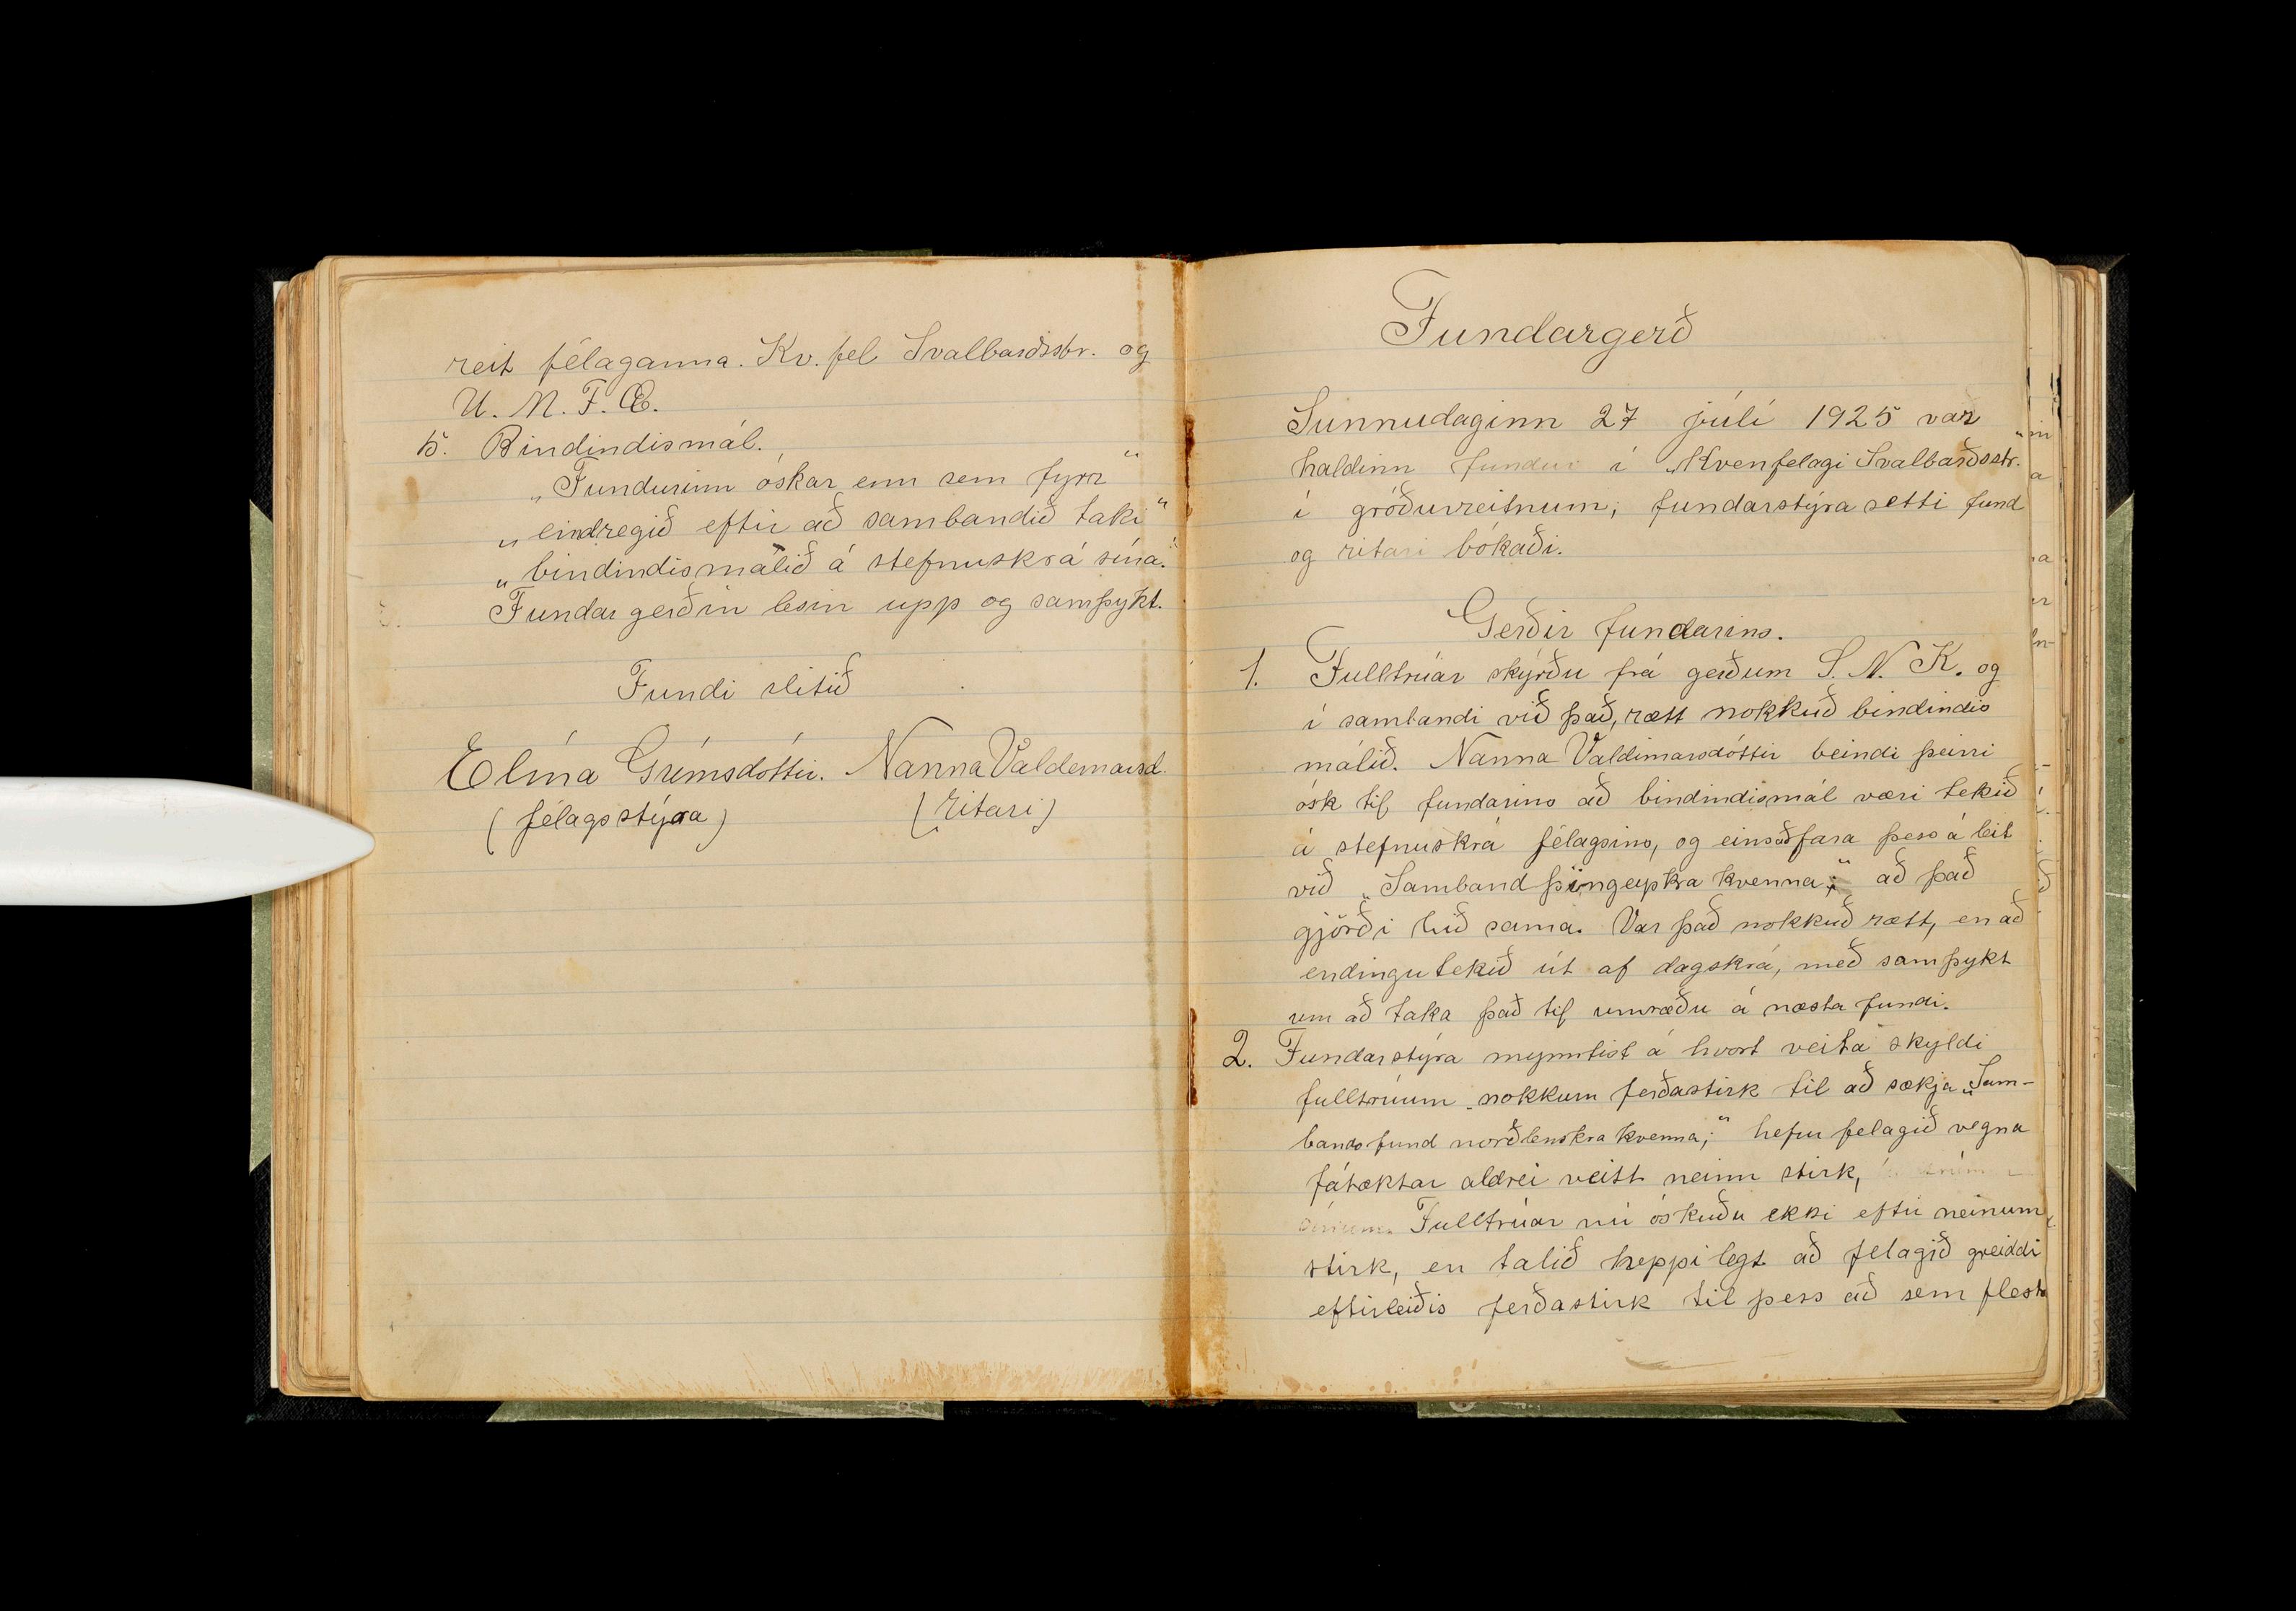 reit félaganna. Kv. fel Svalbarðsstr. og
U. M. F. Æ.
5. Bindindismál.
„Fundurinn óskar enn sem fyrr"
„eindregið eftir að sambandið taki"
„bindindismálið á stefnuskrá sína."
Fundargerðin lesin upp og samþykt.
Fundi slitið
Elína Grímsdóttir. Nanna Valdemarsd.
(félagsstýra) (ritari)
Fundargerð
Sunnudaginn 27 júlí 1925 var
haldinn fundur í „Kvenfelagi Svalbarðsstr.
í gróðurreitnum; fundarstýra setti fund
og ritari bókaði.
Gerðir fundarins.
1. Fulltrúar skýrðu frá gerðum S. N. K. og
í sambandi við það, rætt nokkuð bindindis
málið. Nanna Valdimarsdóttir beindi þeirri
ósk til fundarins að bindindismál væri tekið
á stefnuskrá félagsins, og einsað fara þess á leit
við „Samband þingeyskra kvenna;" að það
gjörði hið sama. Var það nokkuð rætt, en að
endingu tekið út af dagskrá, með samþykt
um að taka það til umræðu á næsta fundi.
2. Fundarstýra mynntist á hvort veita skyldi
fulltrúum nokkurn ferðastirk til að sækja „Sam-
bandsfund norðlenskra kvenna;" hefur felagið vegna
fátæktar aldrei veitt neinn stirk,
Fulltrúar nú óskuðu ekki eftir neinum
stirk, en talið heppilegt að felagið greiddi
eftirleiðis ferðastirk til þess að sem flesta